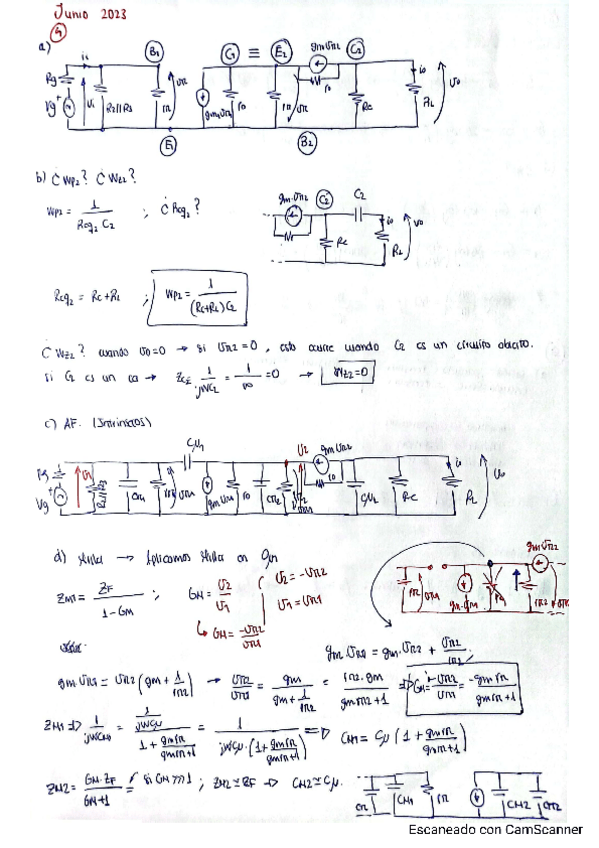 Junio 2023
4
a)
B1
C1 ≡ E2
gmVπ2
C2
Rg
Vg
rπ
gmVπ1
ro
rπ
Rc
RL
io
vo
E1
B2
b) ¿ Wp2? ¿ Wz2?
Wp2 = 1 / (Req2 C2) ; ¿ Req2?
gmVπ2 C2 C2
Rc
io
RL
vo
Req2 = Rc+RL ; Wp2 = 1 / ((Rc+RL)C2)
¿ Wz2? cuando vo=0 → si Vπ2=0, esto ocurre cuando C2 es un circuito abierto.
si C2 es un ca → Zc= 1/jWC2 = 1/∞ =0 → Wz2=0
c) AF. (Intrínsecos)
Cμ1
V2
gmVπ2
Rg
Vg
V1
Cπ1
Vπ1
gmVπ1
ro
Cπ2
Cμ2
Rc
io
RL
vo
d) Miller → Aplicamos Miller en Cμ1
ZM1 = ZF / (1-GM) ; GM = V2/V1 ( V2 = -Vπ2
V1 = Vπ1
↳ GM = -Vπ2/Vπ1
gm.Vπ1 = gm.Vπ2 + Vπ2/rπ2
gm.Vπ1 = Vπ2 (gm + 1/rπ2) → Vπ2/Vπ1 = gm / (gm + 1/rπ2) = rπ2.gm / (gmrπ2+1) ⇒ GM = -Vπ2/Vπ1 = -gmrπ / (gmrπ+1)
ZM1 ⇒ 1/jWCM1 = (1/jWCμ) / (1 + gmrπ/(gmrπ+1)) = 1 / (jWCμ.(1+gmrπ/(gmrπ+1))) ⇒ CM1 = Cμ (1 + gmrπ/(gmrπ+1))
ZM2 = GM.ZF / (GM+1) = si GM>>>1 ; ZM2 ≃ ZF → CM2 ≃ Cμ.
Cπ CM1 rπ
CM2 Cπ2
Escaneado con CamScanner